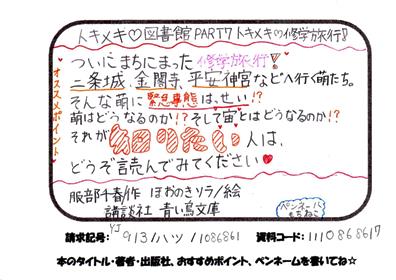 トキメキ♡図書館 PART7 トキメキ♡修学旅行!
オススメポイント
ついにまちにまった修学旅行!
二条城、金閣寺、平安神宮などへ行く萌たち。
そんな萌に緊急事態はっせい!?
萌はどうなるのか!?そして宙とはどうなるのか!?
それが知りたい人は、
どうぞ読んでみてください♥
服部千春/作 ほおのきソラ/絵
講談社 青い鳥文庫
ペンネーム
もちねこ
請求記号: YJ 913/ハツ/1086861 資料コード: 1110868617
本のタイトル・著者・出版社、おすすめポイント、ペンネームを書いてね☆